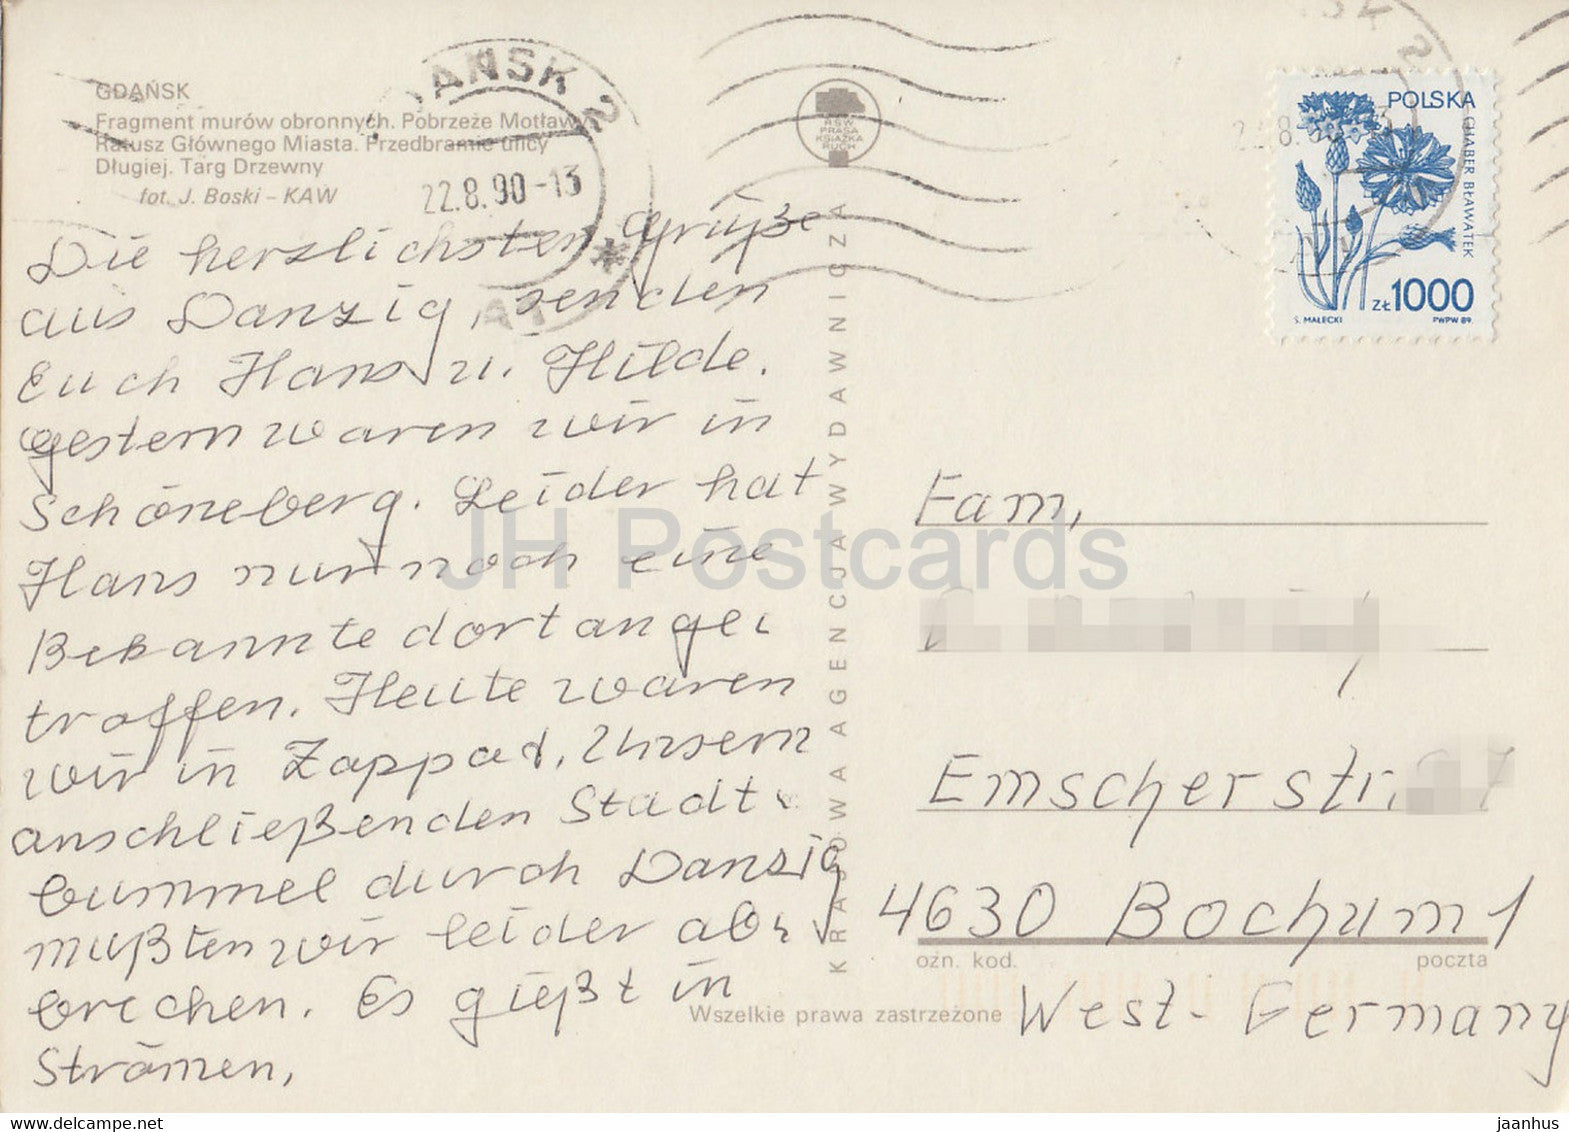 GDAŃSK
Fragment murów obronnych. Pobrzeże Motławy
Ratusz Głównego Miasta. Przedbramie ulicy
Długiej. Targ Drzewny
fot. J. Boski – KAW
GDAŃSK 2
22.8.90-13
RSW
PRASA
KSIĄŻKA
RUCH
POLSKA
CHABER BŁAWATEK
ZŁ 1000
S. MAŁECKI
PWPW 89.
Die herzlichsten Grüße
aus Danzig, senden
Euch Hans u. Hilde.
Gestern waren wir in
Schöneberg. Leider hat
Hans nur noch eine
Bekannte dort ange-
troffen. Heute waren
wir in Zappot, Unsern
anschließenden Stadt-
bummel durch Danzig
mußten wir leider ab-
brechen. Es gießt in
Strömen,
KRAJOWA AGENCJA WYDAWNICZA
Fam,
Emscherstr.
4630 Bochum 1
ozn. kod.
poczta
Wszelkie prawa zastrzeżone
West-Germany
JH Postcards
www.delcampe.net
jaanhus